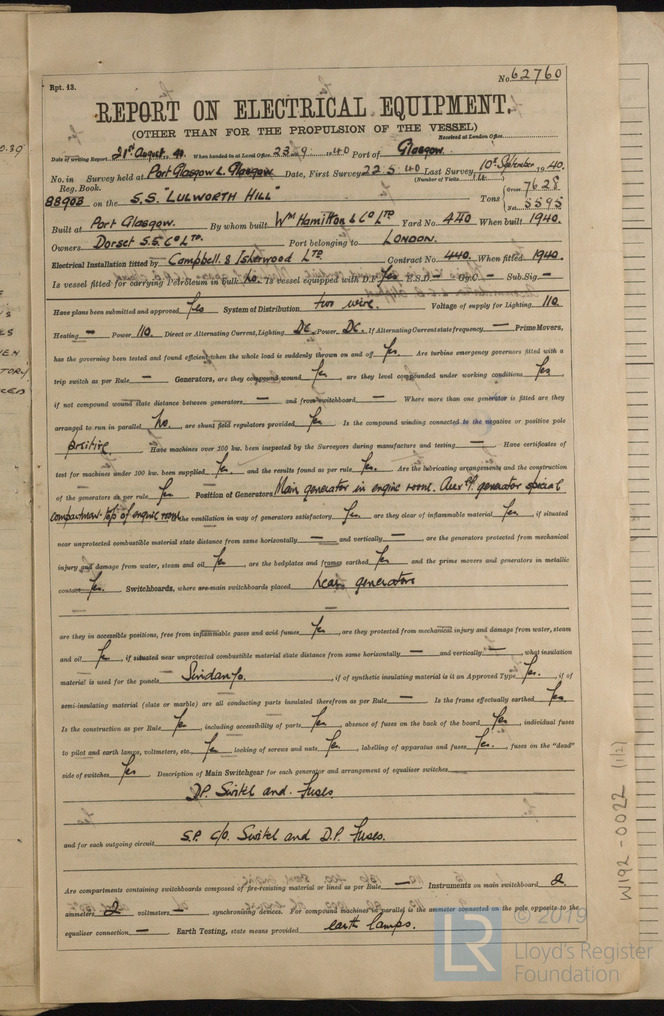 Rpt. 13.
No. 62760
REPORT ON ELECTRICAL EQUIPMENT.
(OTHER THAN FOR THE PROPULSION OF THE VESSEL)
Received at London Office
Date of writing Report 21st August 40 When handed in at Local Office 23.9.1940 Port of Glasgow.
No. in Survey held at Port Glasgow & Glasgow Date, First Survey 22.5.40 Last Survey 10th September 1940.
Reg. Book. (Number of Visits 14)
88903 on the S.S. "LULWORTH HILL" Tons Gross 7628 Net 5595
Built at Port Glasgow. By whom built Wm Hamilton & Co LTD Yard No. 440 When built 1940.
Owners Dorset S.S. Co LTD. Port belonging to LONDON.
Electrical Installation fitted by Campbell & Isherwood LTD Contract No. 440. When fitted 1940.
Is vessel fitted for carrying Petroleum in bulk No. Is vessel equipped with D.F. Yes E.S.D. — Gy.C. — Sub.Sig. —
Have plans been submitted and approved Yes System of Distribution two wire. Voltage of supply for Lighting 110.
Heating — Power 110. Direct or Alternating Current, Lighting DC Power DC. If Alternating Current state frequency — Prime Movers,
has the governing been tested and found efficient when the whole load is suddenly thrown on and off Yes. Are turbine emergency governors fitted with a
trip switch as per Rule — Generators, are they compound wound Yes, are they level compounded under working conditions Yes,
if not compound wound state distance between generators — and from switchboard — Where more than one generator is fitted are they
arranged to run in parallel No., are shunt field regulators provided Yes Is the compound winding connected to the negative or positive pole
positive Have machines over 100 kw. been inspected by the Surveyors during manufacture and testing — Have certificates of
test for machines under 100 kw. been supplied Yes and the results found as per rule Yes. Are the lubricating arrangements and the construction
of the generators as per rule Yes Position of Generators Main generator in engine room. generator special
compartment top of engine room the ventilation in way of generators satisfactory Yes are they clear of inflammable material Yes, if situated
near unprotected combustible material state distance from same horizontally — and vertically —, are the generators protected from mechanical
injury and damage from water, steam and oil Yes, are the bedplates and frames earthed Yes and the prime movers and generators in metallic
contact Yes. Switchboards, where are main switchboards placed near generators
are they in accessible positions, free from inflammable gases and acid fumes Yes, are they protected from mechanical injury and damage from water, steam
and oil Yes, if situated near unprotected combustible material state distance from same horizontally — and vertically —, what insulation
material is used for the panels Sindanyo., if of synthetic insulating material is it an Approved Type Yes., if of
semi-insulating material (slate or marble) are all conducting parts insulated therefrom as per Rule — Is the frame effectually earthed Yes
Is the construction as per Rule Yes, including accessibility of parts Yes, absence of fuses on the back of the board Yes, individual fuses
to pilot and earth lamps, voltmeters, etc. Yes locking of screws and nuts Yes, labelling of apparatus and fuses Yes., fuses on the "dead"
side of switches Yes Description of Main Switchgear for each generator and arrangement of equaliser switches
D.P. Switch and Fuses
and for each outgoing circuit S.P. c/o. Switch and D.P. Fuses.
Are compartments containing switchboards composed of fire-resisting material or lined as per Rule — Instruments on main switchboard 2
ammeters 2 voltmeters — synchronising devices. For compound machines in parallel is the ammeter connected on the pole opposite to the
equaliser connection — Earth Testing, state means provided earth lamps.
W192-0022 (1/2)
© 2019
LR
Lloyd's Register
Foundation